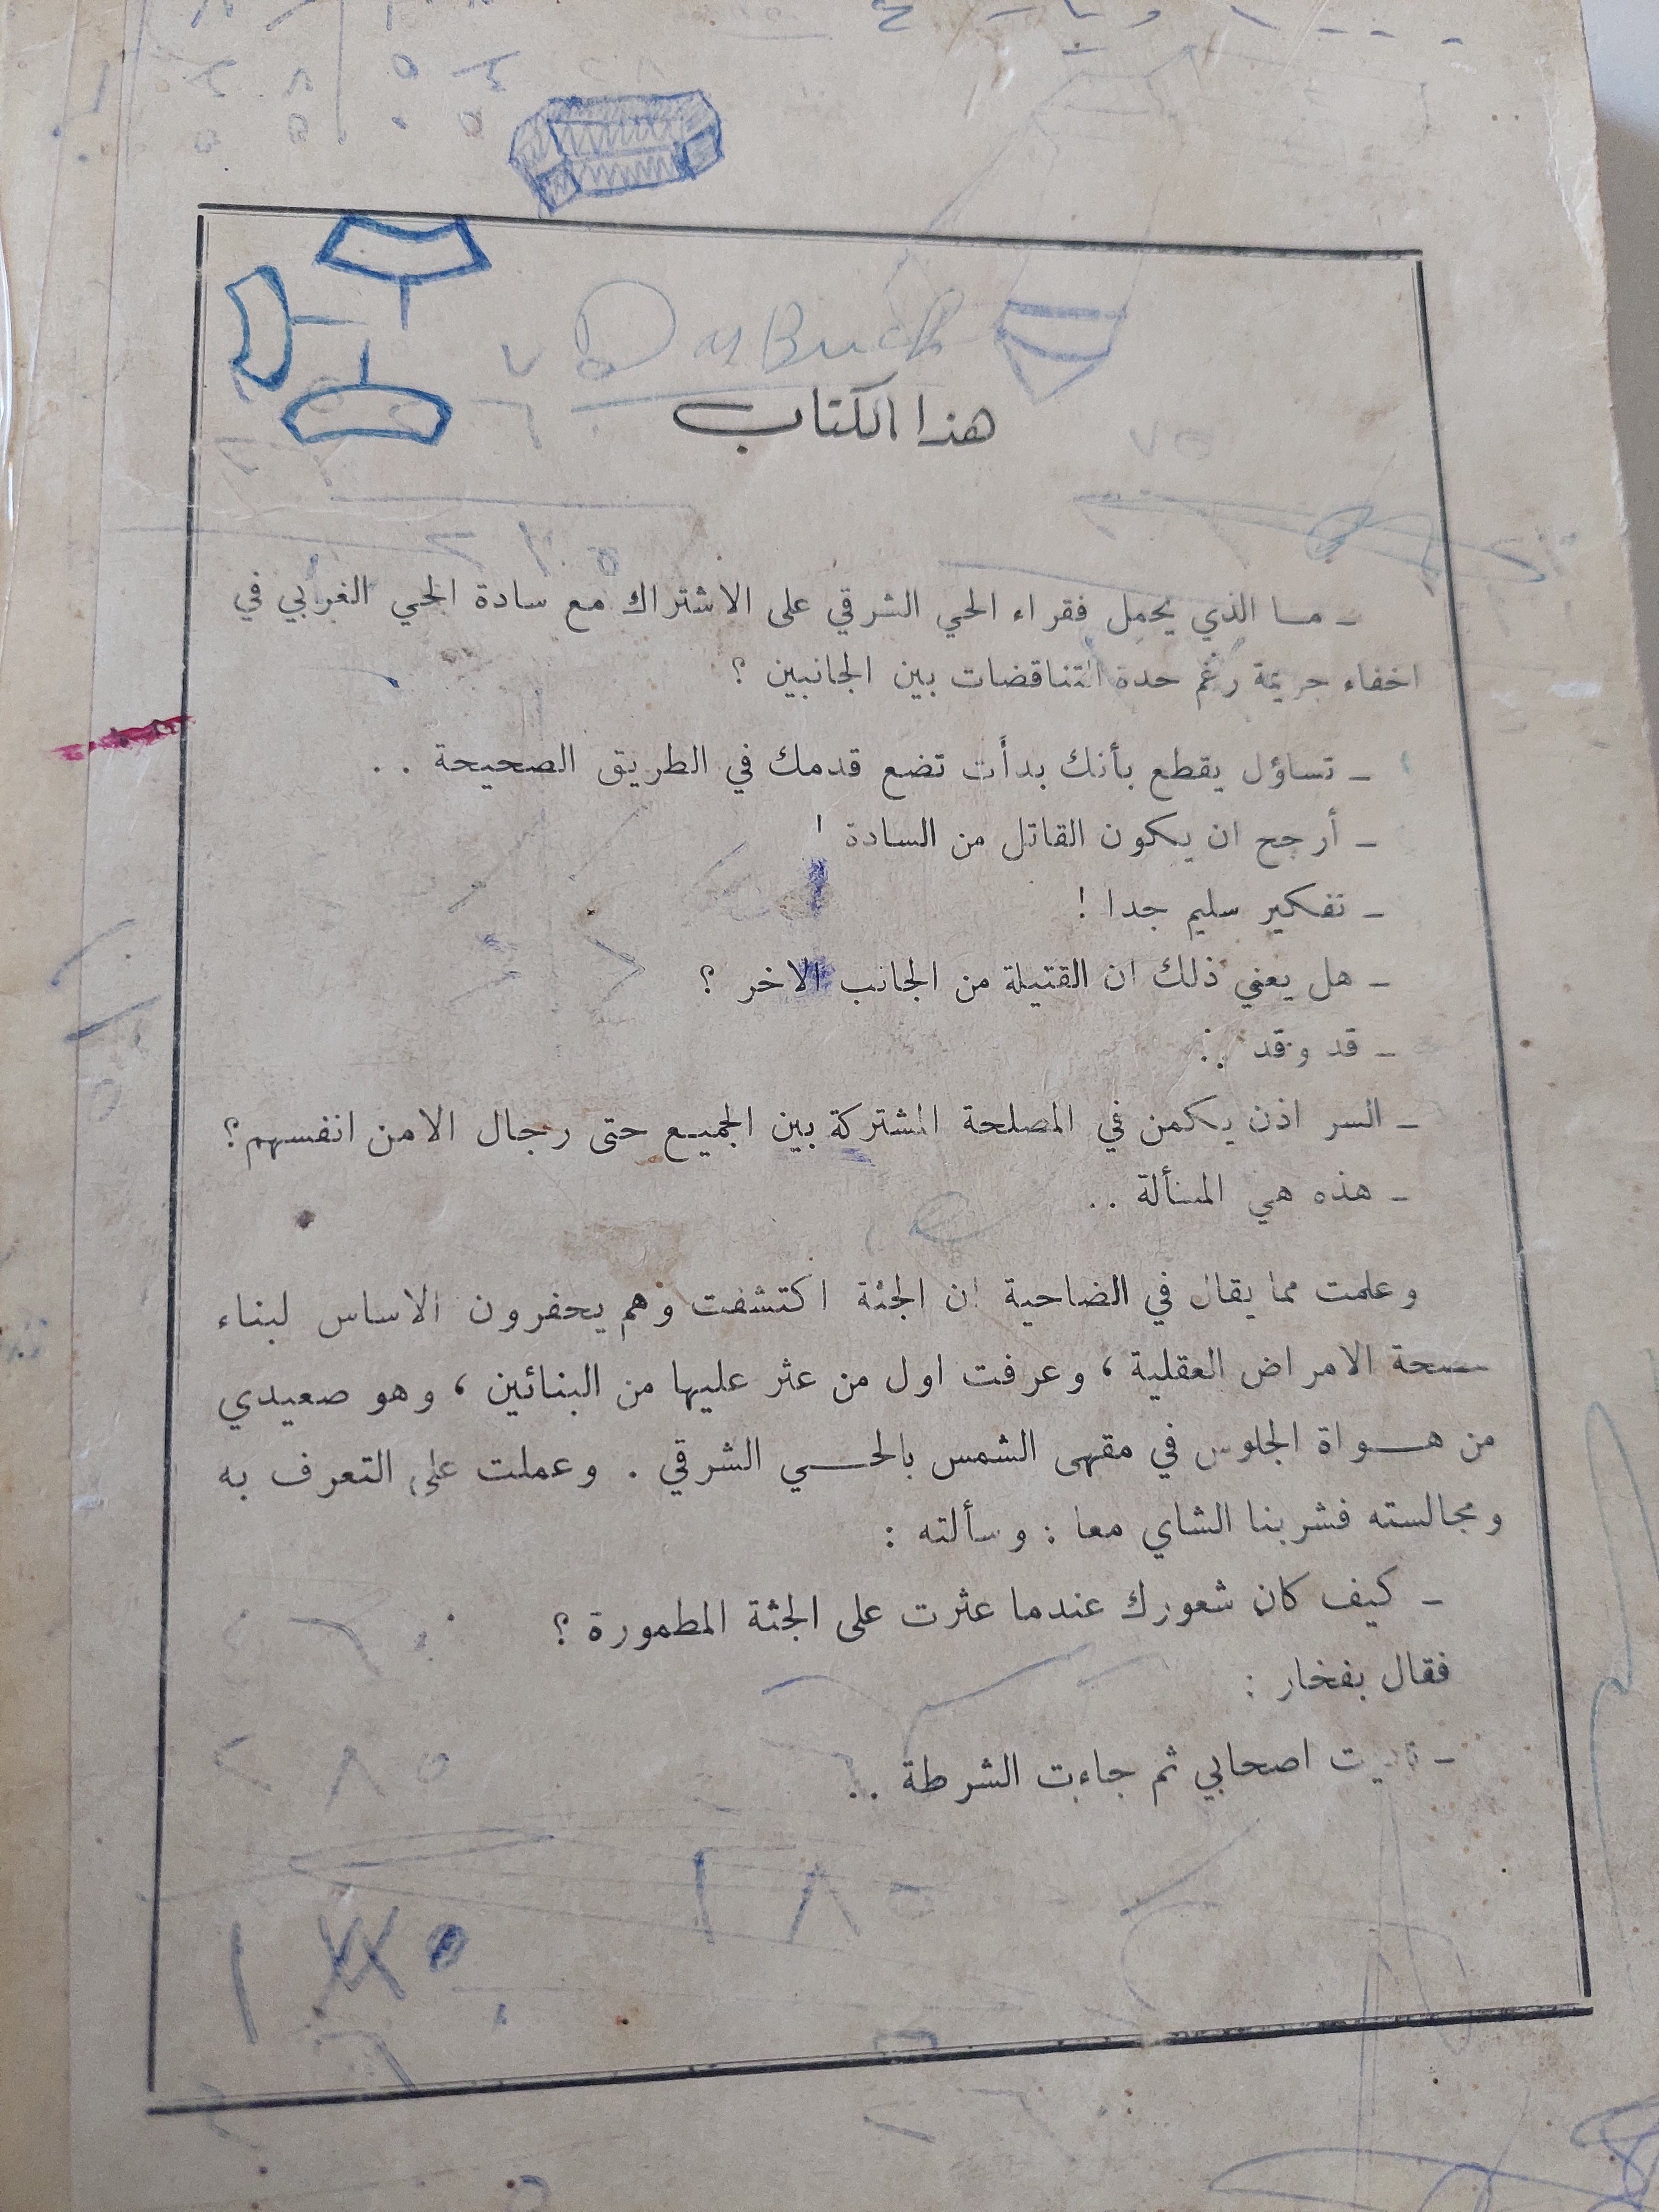 Das Buch
هذا الكتاب
ـ مـا الذي يحمل فقراء الحي الشرقي على الاشتراك مع سادة الحي الغربي في
اخفاء جريمة رغم حدة التناقضات بين الجانبين ؟
ـ تساؤل يقطع بأنك بدأت تضع قدمك في الطريق الصحيحة . .
ـ أرجح ان يكون القاتل من السادة !
ـ تفكير سليم جدا !
ـ هل يعني ذلك ان القتيلة من الجانب الاخر ؟
ـ قد وقد . .
ـ السر اذن يكمن في المصلحة المشتركة بين الجميـع حتى رجال الامن انفسهم ؟
ـ هذه هي المسألة . .
وعلمت مما يقال في الضاحية ان الجثة اكتشفت وهم يحفرون الاساس لبناء
مصحة الامراض العقلية ، وعرفت اول من عثر عليها من البنائين ، وهو صعيدي
من هـواة الجلوس في مقهى الشمس بالحـي الشرقي . وعملت على التعرف به
ومجالسته فشربنا الشاي معا : وسألته :
ـ كيف كان شعورك عندما عثرت على الجثة المطمورة ؟
فقال بفخار :
ـ اصحابي ثم جاءت الشرطة . .